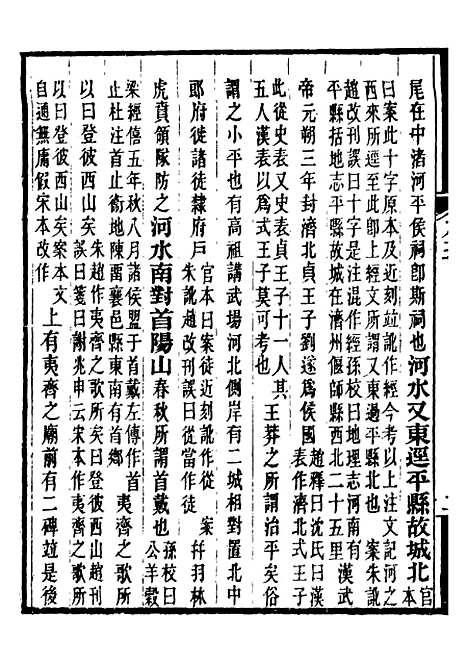 尾在中渚河平侯祠卽斯祠也河水又東逕平縣故城北官本
曰案此十字原本及近刻竝訛作經今考以上注文記河之
西來所逕至此卽上經文所謂又東過平縣北也 案朱訛
趙改刋誤曰十字是注混作經孫校曰地理志河南有
平縣括地志平縣故城在濟州偃師縣西北二十五里
漢武
帝元朔三年封濟北貞王子劉遂爲侯國
趙釋曰沈氏曰漢
表作濟北式王子
此從史表又史表貞王子十一人其
五人漢表以爲式王子莫可考也
王莽之所謂治平矣俗
謂之小平也有高祖講武場河北側岸有二城相對置北中
郎府徙諸徒隸府戶
官本曰案徒近刻訛作從 案
朱訛趙改刋誤曰從當作徒
幷羽林
虎賁領隊防之河水南對首陽山春秋所謂首戴也
孫校曰
公羊穀
梁經僖五年秋八月諸侯盟于首戴左傳作首
止杜注首止衛地陳留襄邑縣東南有首鄉
夷齊之歌所
以曰登彼西山矣
朱趙作夷齊之歌所矣曰登彼西山趙刋
誤曰箋曰謝兆申云宋本作夷齊之歌所
以曰登彼西山矣案本文
自通無庸假宋本改作
上有夷齊之廟前有二碑竝是後